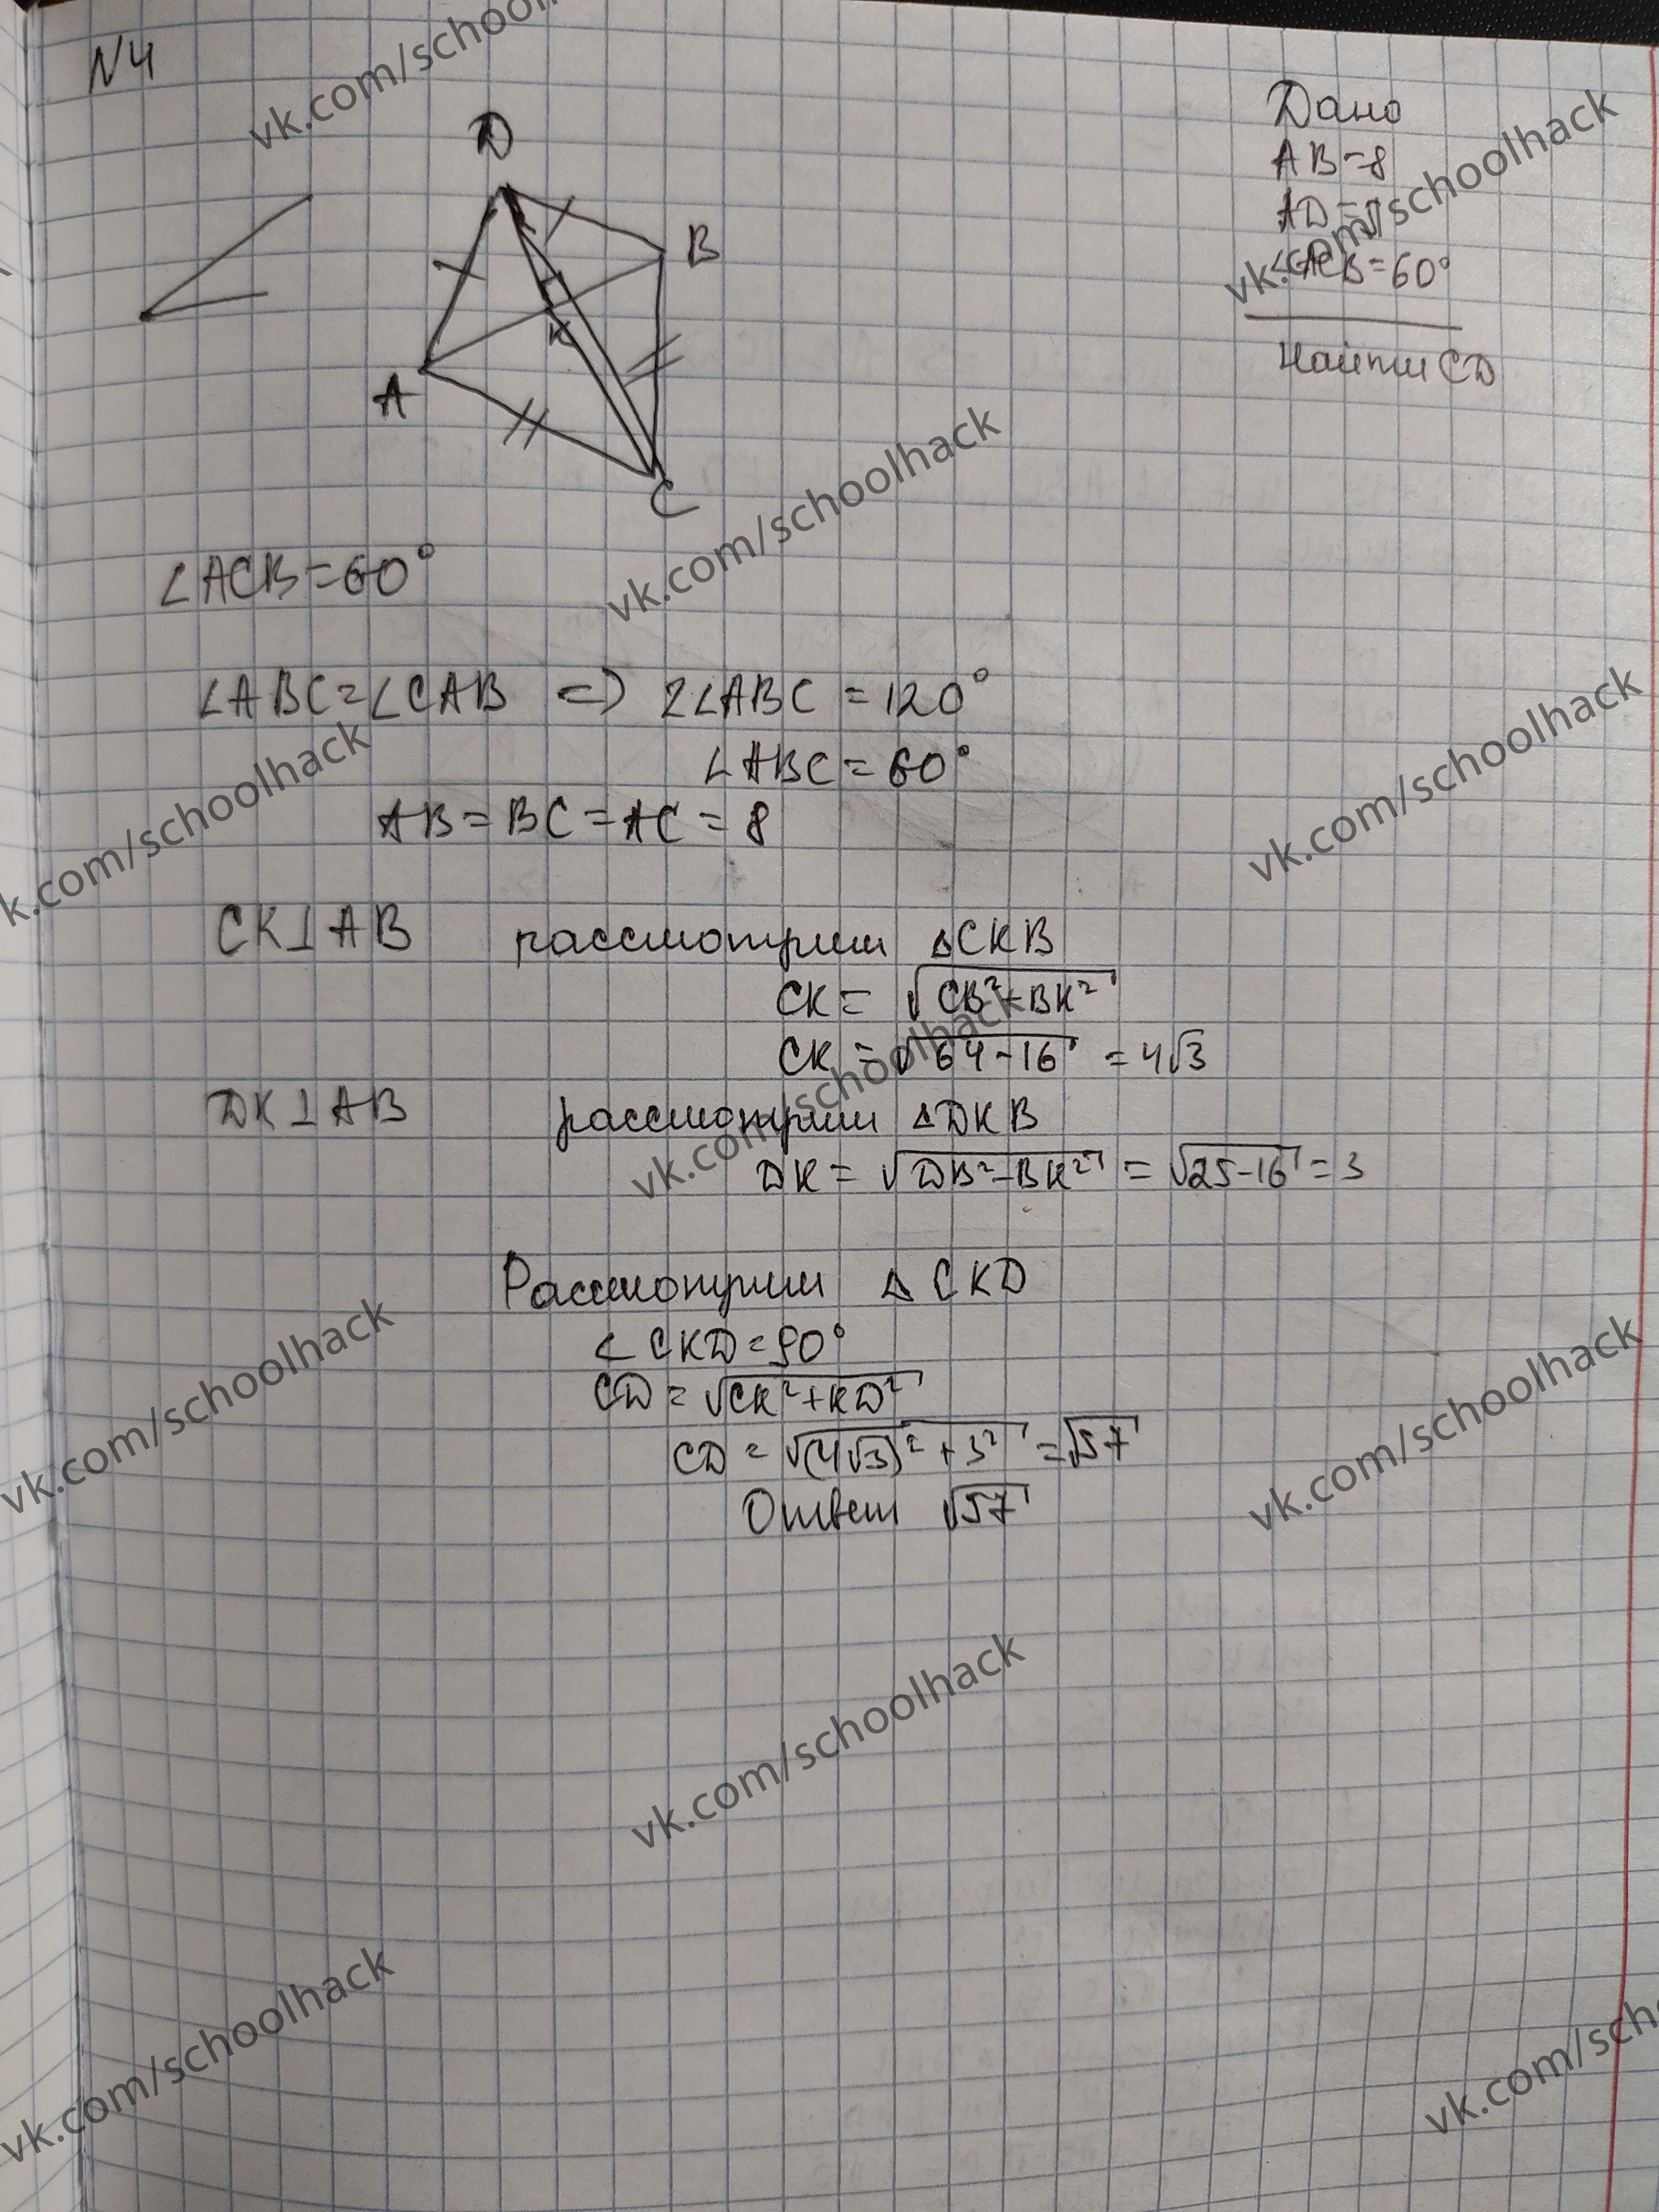 N4
D
B
K
A
C
Дано
AB=8
AD=5
∠ACB=60°
Найти CD
∠ACB=60°
∠ABC=∠CAB => 2∠ABC=120°
∠ABC=60°
AB=BC=AC=8
CK⊥AB рассмотрим ΔCKB
CK=√CB²-BK²
CK=√64-16=4√3
DK⊥AB рассмотрим ΔDKB
DK=√DB²-BK²=√25-16=3
Рассмотрим ΔCKD
∠CKD=90°
CD=√CK²+KD²
CD=√(4√3)²+3²=√57
Ответ √57
vk.com/schoolhack
vk.com/schoolhack
vk.com/schoolhack
vk.com/schoolhack
vk.com/schoolhack
vk.com/schoolhack
vk.com/schoolhack
vk.com/schoolhack
vk.com/schoolhack
vk.com/schoolhack
vk.com/schoolhack